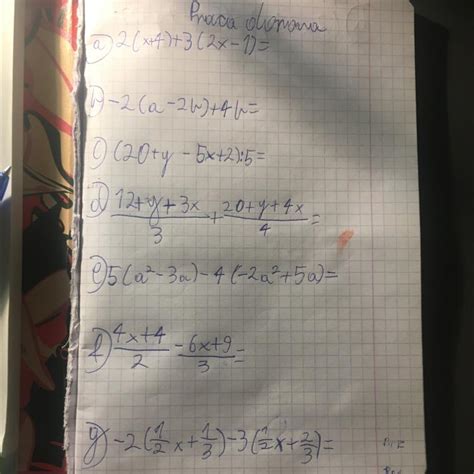 Praca domowa
a) 2(x+4)+3(2x-1)=
b) -2(a-2b)+4b=
c) (20+y-5x+2):5=
d) \frac{12+y+3x}{3}+\frac{20+y+4x}{4}=
e) 5(a²-3a)-4(-2a²+5a)=
f) \frac{4x+4}{2}-\frac{6x+9}{3}=
g) -2(\frac{1}{2}x+\frac{1}{3})-3(\frac{1}{2}x+\frac{2}{3})=